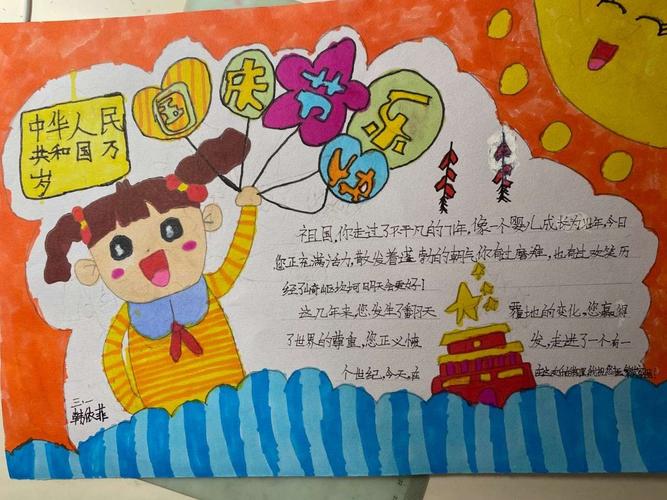 中华人民
共和国万
岁
国庆节快乐
祖国,你走过了不平凡的71年,像一个婴儿成长为年,今日
您正充满活力,散发着蓬勃的朝气,你有过磨难,也有过欢笑历
经了崎岖坎坷明天会更好!
这几年来,您发生了翻天 覆地的变化,您赢得
了世界的尊重,您正义愤 发,走进了一个有一
个世纪,今天,在
三.一
韩依菲